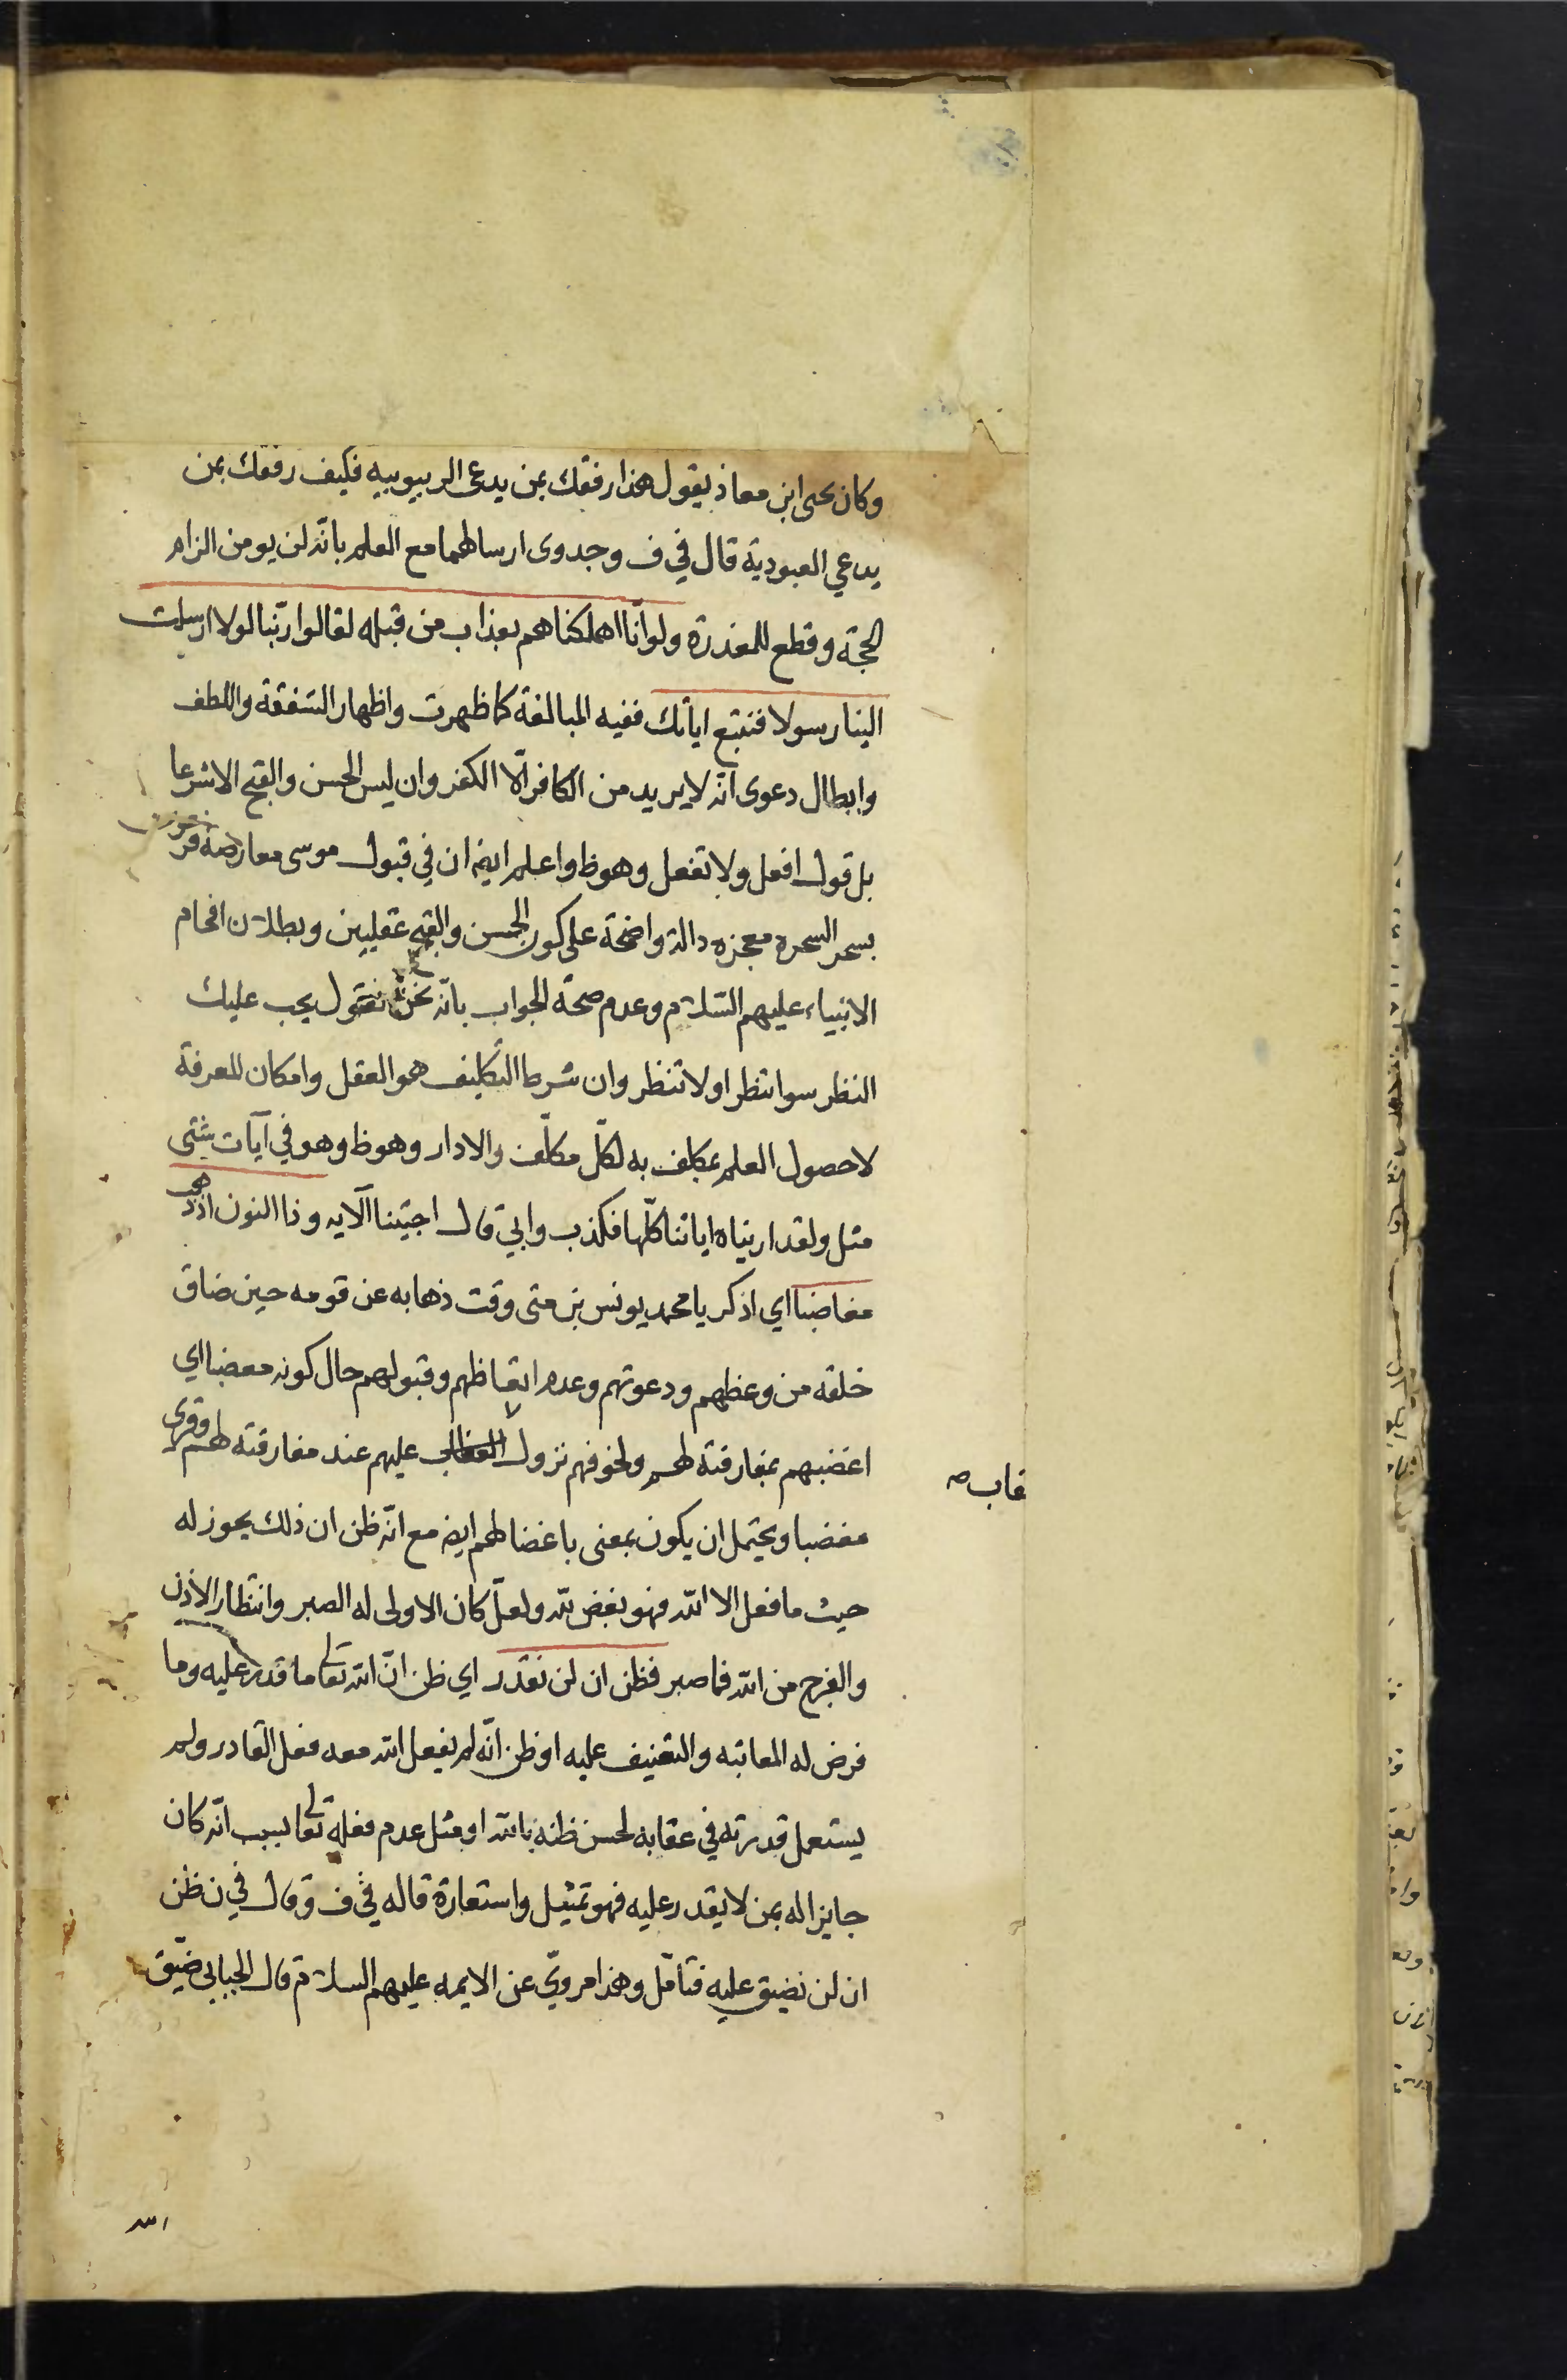 وكان يحيى ابن معاذ يقول هذا رفقك بمن يدعى الربيوبيه فكيف رفقك بمن
يدعي العبودية قال في ف وجدوى ارسالهما مع العلم بانّه لن يومن الزام
الحجّة وقطع المعذرة ولو انّا اهلكناهم بعذاب من قبله لقالوا ربّنا لولا ارسلت
الينا رسولا فنتبع اياتك ففيه المبالغة كما ظهرت واظهار الشفقة واللطف
وابطال دعوى انّه لا يريد من الكافر الّا الكفر وان ليس الحسن والقبح الا شرعا
بل قول افعل ولا تفعل وهو ظ واعلم ايضا ان في قبول موسى معارضة فرعون
بسحر السحرة معجزه دالة واضحة على كون الحسن والقبح عقليين وبطلان افحام
الانبياء عليهم السّلام وعدم صحّة الجواب بانّه نحن نقول يجب عليك
النظر سوا تنظر او لا تنظر وان شرط التكليف هو العقل وامكان المعرفة
لا حصول العلم بمكلف به لكلّ مكلّف والا دار وهو ظ وهو في آيات شتى
مثل ولقد اريناه اياتنا كلّها فكذب وابي قال اجئتنا الآيه وذا النون اذ ذهب
مغاضبا اي اذكر يا محمد يونس بن متى وقت ذهابه عن قومه حين ضاق
خلقه من وعظهم ودعوتهم وعدم اتعاظهم وقبولهم حال كونه مغضبا اي
اغضبهم بمفارقته لهم ولخوفهم نزول العقاب عليهم عند مفارقته لهم وقرئ
قاب صه
مغضبا ويحتمل ان يكون بمعنى باغضا لهم ايضا مع انّه ظن ان ذلك يجوز له
حيث ما فعل الا لله فهو بغض لله ولعلّ كان الاولى له الصبر وانتظار الأذن
والفرج من الله فما صبر فظن ان لن نقدر اي ظن انّ الله تعالى ما قدر عليه وما
فرض له المعاتبه والتعنيف عليه او ظن انّه لم يفعل الله معه فعل القادر ولم
يستعمل قدرته في عقابه لحسن ظنه بالله او مثل عدم فعله تعالى بسبب انّه كان
جايزا له بمن لا يقدر عليه فهو تمثيل واستعارة قاله في ف وقال في ن ظن
ان لن نضيق عليه فتامّل وهذا مرويّ عن الايمه عليهم السلام قال الجبايي ضيّق
الله